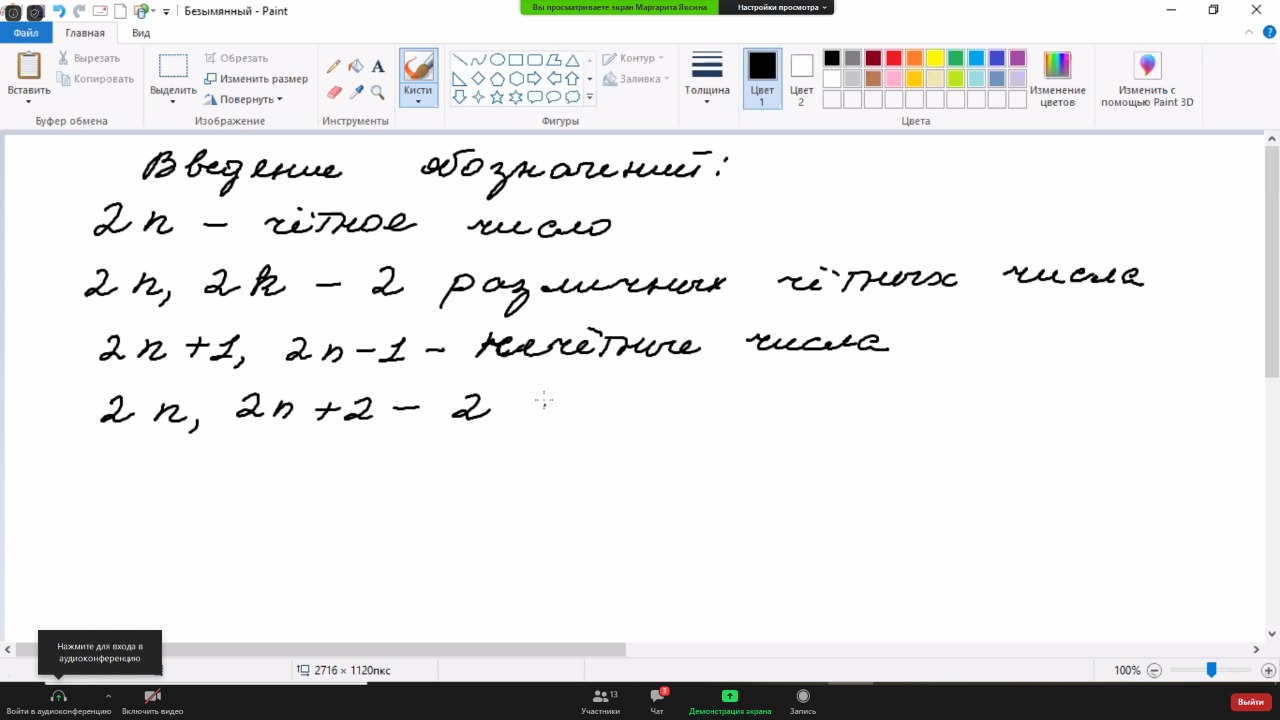 Безымянный - Paint
Вы просматриваете экран Маргарита Яксина
Настройки просмотра
Файл
Главная
Вид
Вставить
Вырезать
Копировать
Буфер обмена
Выделить
Обрезать
Изменить размер
Повернуть
Изображение
Инструменты
Кисти
Контур
Заливка
Фигуры
Толщина
Цвет 1
Цвет 2
Цвета
Изменение цветов
Изменить с помощью Paint 3D
Введение обозначений:
2n – чётное число
2n, 2k – 2 различных чётных числа
2n+1, 2n-1 – нечётные числа
2n, 2n+2 – 2
Нажмите для входа в аудиоконференцию
2716 × 1120пкс
100%
Войти в аудиоконференцию
Включить видео
13
Участники
3
Чат
Демонстрация экрана
Запись
Выйти